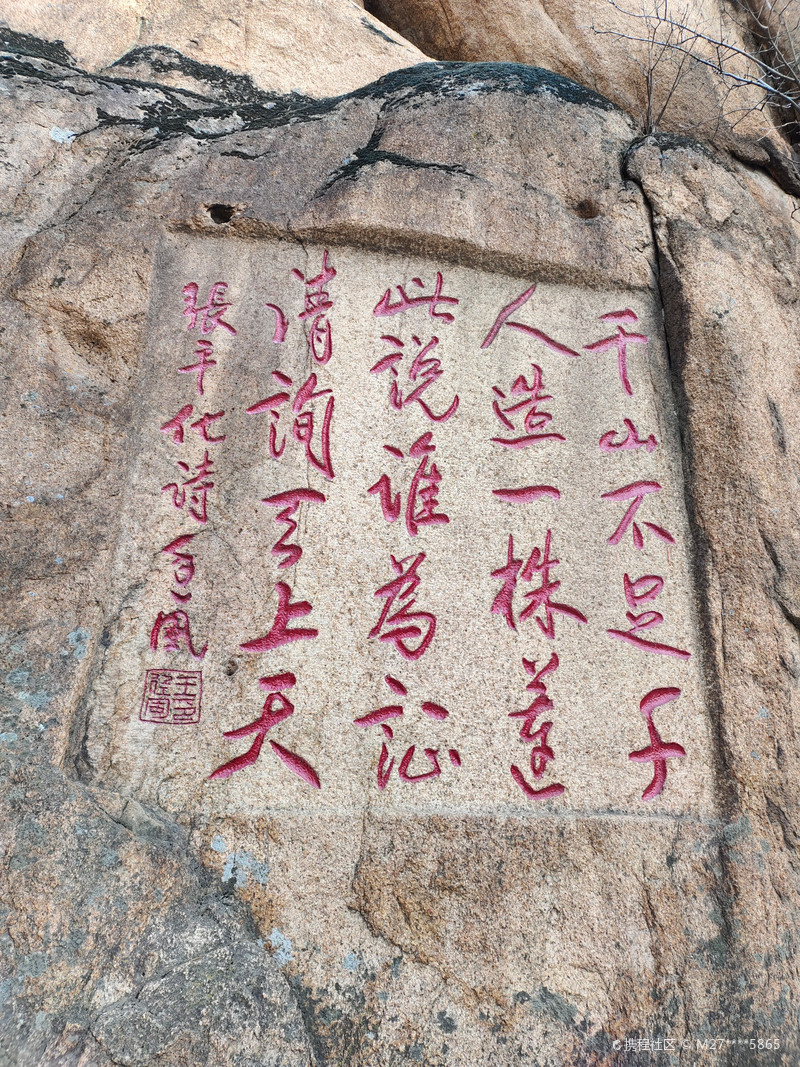 千山不足千
人造一株蓮
此説誰為証
請詢天上天
張平化詩
携程社区 © M27****5865